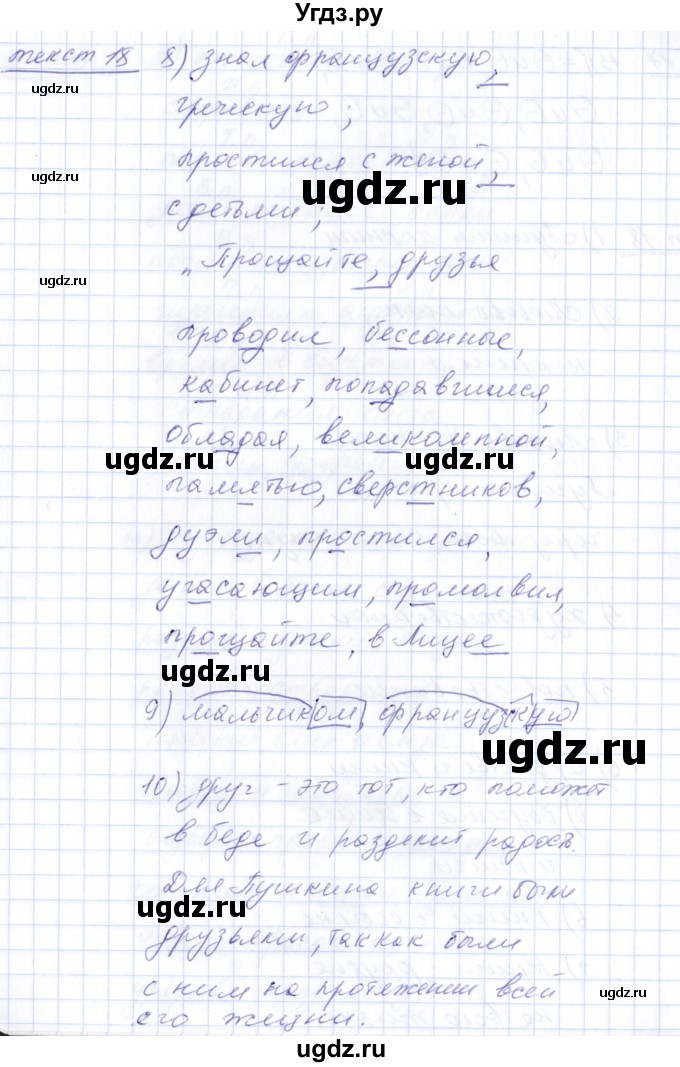 Угдз.ру
текст 18 8) знал французскую,
ugdz.ru
греческую;
ugdz.ru
простился с женой,
ugdz.ru
с детьми;
ugdz.ru
„Прощайте, друзья
проводил, бессонные,
кабинет, попадавшиеся,
обладая, великолепной,
ugdz.ru ugdz.ru
памятью, сверстников,
дуэли, простился,
угасающим, промолвил,
прощайте, в Лицее
ugdz.ru ugdz.ru
9) мальчиком, французскую
ugdz.ru
10) друг – это тот, кто поможет
в беде и разделит радость.
Для Пушкина книги были
ugdz.ru
друзьями, так как были
с ним на протяжении всей
ugdz.ru
его жизни.
ugdz.ru